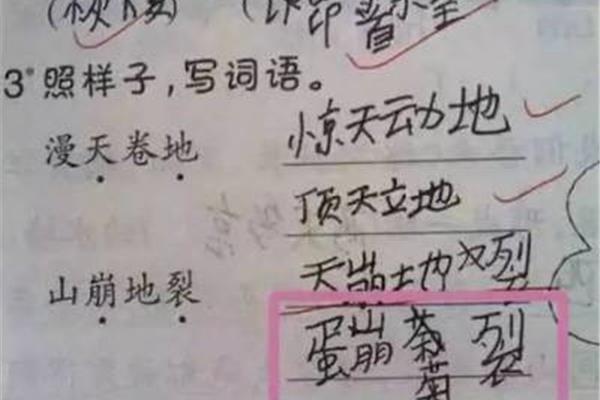 3°照样子,写词语。
漫天卷地 惊天动地
顶天立地
山崩地裂 天崩地裂
蛋崩菊裂